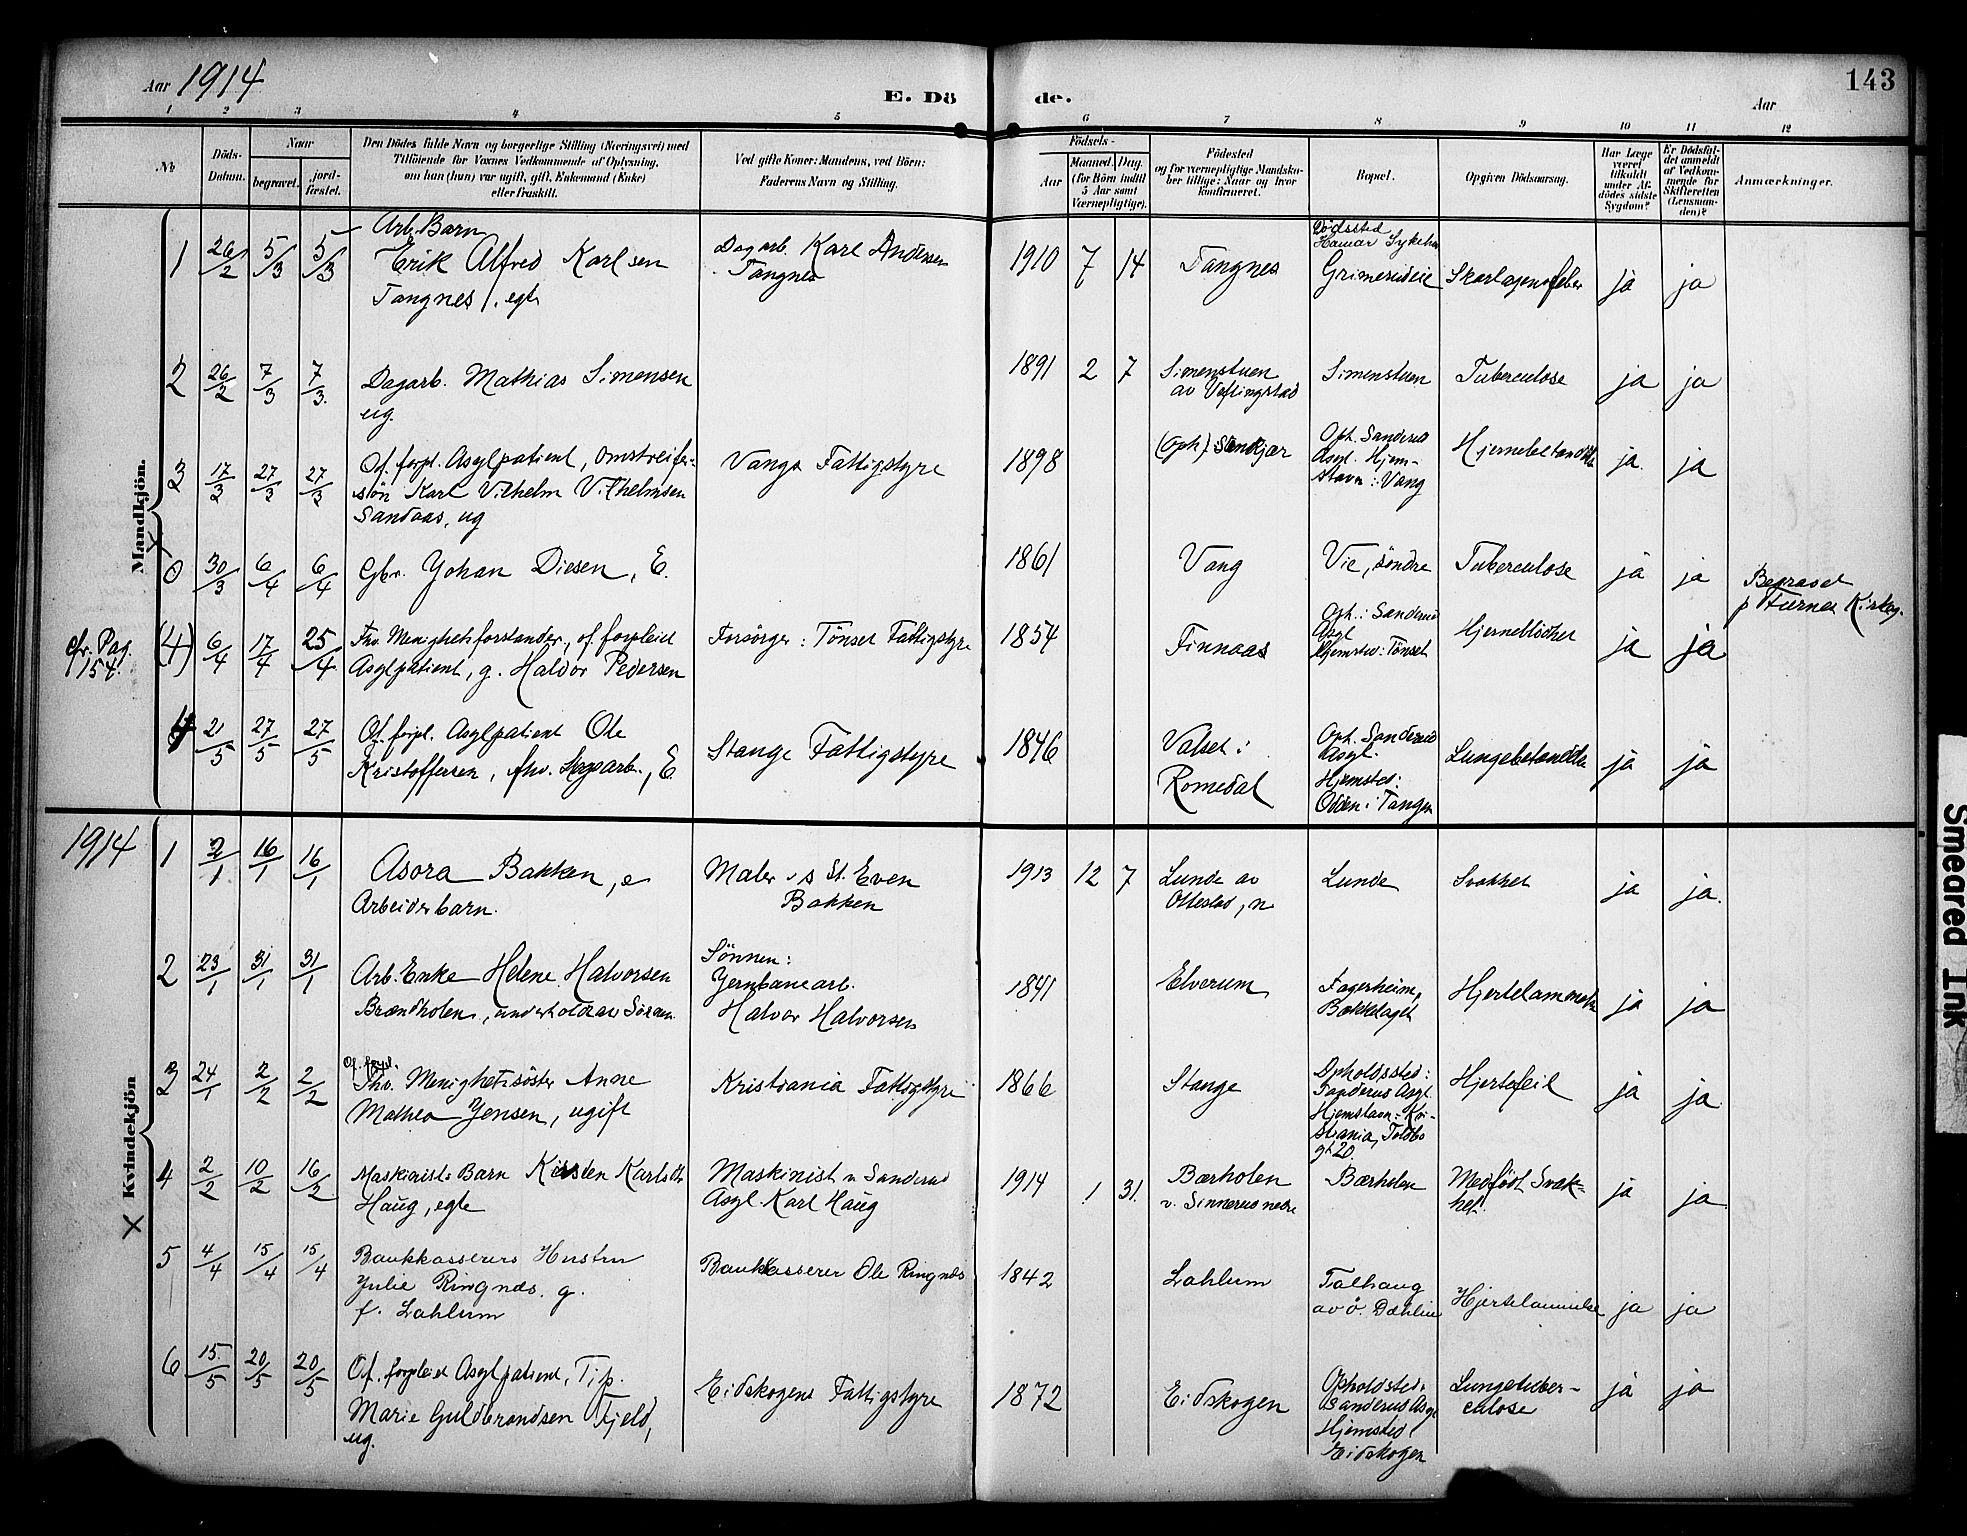 Aar 1914
E. Dö de.
Aar
143
1 2 3 4 5 6 7 8 9 10 11 12
No.
Döds-
Datum.
Naar
begravet.
jord-
fæstet.
Den Dödes fulde Navn og borgerlige Stilling (Næringsvei) med
Tilföiende for Voxnes Vedkommende af Oplysning,
om han (hun) var ugift, gift, Enkemand (Enke)
eller fraskilt.
Ved gifte Koner: Mandens, ved Börn:
Faderens Navn og Stilling.
Födsels-
Aar
Maaned. Dag.
(for Börn indtil
5 Aar samt
Værnepligtige).
Födested
og for værnepligtige Mandsku-
ber tillige: Naar og hvor
konfirmeret.
Bopæl.
Opgiven Dödsaarsag.
Har Læge
været
tilkaldt
under Af-
dödes sidste
Sygdom?
Er Dödsfal-
det anmeldt
af Vedkom-
mende for
Skifteretten
(Lensman-
den)?
Anmærkninger.
Mandkjön.
Arb. Barn
Dödssted
Hamar Sykehu
1 26/2 5/3 5/3 Erik Alfred Karlsen Dagarb. Karl Andersen 1910 7 14 Tangnes Grimerudeie Skarlagensfeber ja ja
Tangnes, egte Tangnes
2 26/2 7/3 7/3 Dagarb. Mathias Simensen 1891 2 7 Simenstuen Simenstuen Tuberculose ja ja
ug. av
3 17/3 27/3 27/3 Of. forpl. Asylpatient, omstreifer- Vangs Fattigstyre 1898 (Oph.) Oph. Sanderud ja ja
sön Karl Vilhelm Vilhelmsen Asyl. Hjem-
Sandaas, ug stavn: Vang
0 30/3 6/4 6/4 Gbr. Johan Diesen, E. 1861 Vang Vie, söndre Tuberculose ja ja
Begravet
p Kirkeg.
cfr. Pag.
154.
(4) 6/4 17/4 25/4 Fhv. Menighetsforstander, of. forpleiet Forsörger: Tönset Fattigstyre 1854 Finnaas Oph.: Sanderud ja ja
Asylpatient, g. Haldor Pedersen Asyl
Hjemsted: Tönset
4 21/5 27/5 27/5 Of. forpl. Asylpatient Ole Stange Fattigstyre 1846 Valset i Oph. Sanderud ja ja
Kristoffersen, fhv. E Romedal Asyl.
Hjemsted:
Odden i Tangen
1914
Kvindekjön
1 2/1 16/1 16/1 Asora Bakken, e Maler St. Even 1913 12 7 Lunde av Lunde Svakhet ja ja.
Arbeiderbarn. Bakken Ottestad, n
2 23/1 31/1 31/1 Arb. Enke Helene Halvorsen Sönnen: 1841 Elverum Fagerheim, ja ja
Brændholen, underholdt av Sönnen Jernbanearb. Bækkelaget
Halvor Halvorsen
3 24/1 2/2 2/2 Of. forpl. Fhv. Menighetssöster Anne Kristiania Fattigstyre 1866 Stange Opholdssted: Hjertefeil ja ja
Mathea Jensen, ugift Sanderud Asyl.
Hjemstavn: Kri-
stiania, Toldbo
gt 20.
4 2/2 10/2 16/2 Maskinists Barn Kirsten Karlsdtr Maskinist v Sanderud 1914 1 31. Bærholen Bærholen Medfödt Svak- ja ja
Haug, egte Asyl Karl Haug v. Sinnerud nedre het.
X
5 4/4 15/4 15/4 Bankkasserers Hustru Bankkasserer Ole Ringnes 1842 Lahlum Solhaug ja ja
Julie Ringnæs. g. av ö. Dæhlin
f. Lahlum Hjertelammelse
6 15/5 20/5 20/5 Of. forpleiet Asylpatient, Tjp. Eidskogens Fattigstyre 1872 Eidskogen Opholdsted: Lungetuber- ja ja
Marie Guldbrandsen Fjeld, Sanderud Asyl culose
ug. Hjemsted
Eidskogen
Smeared Ink